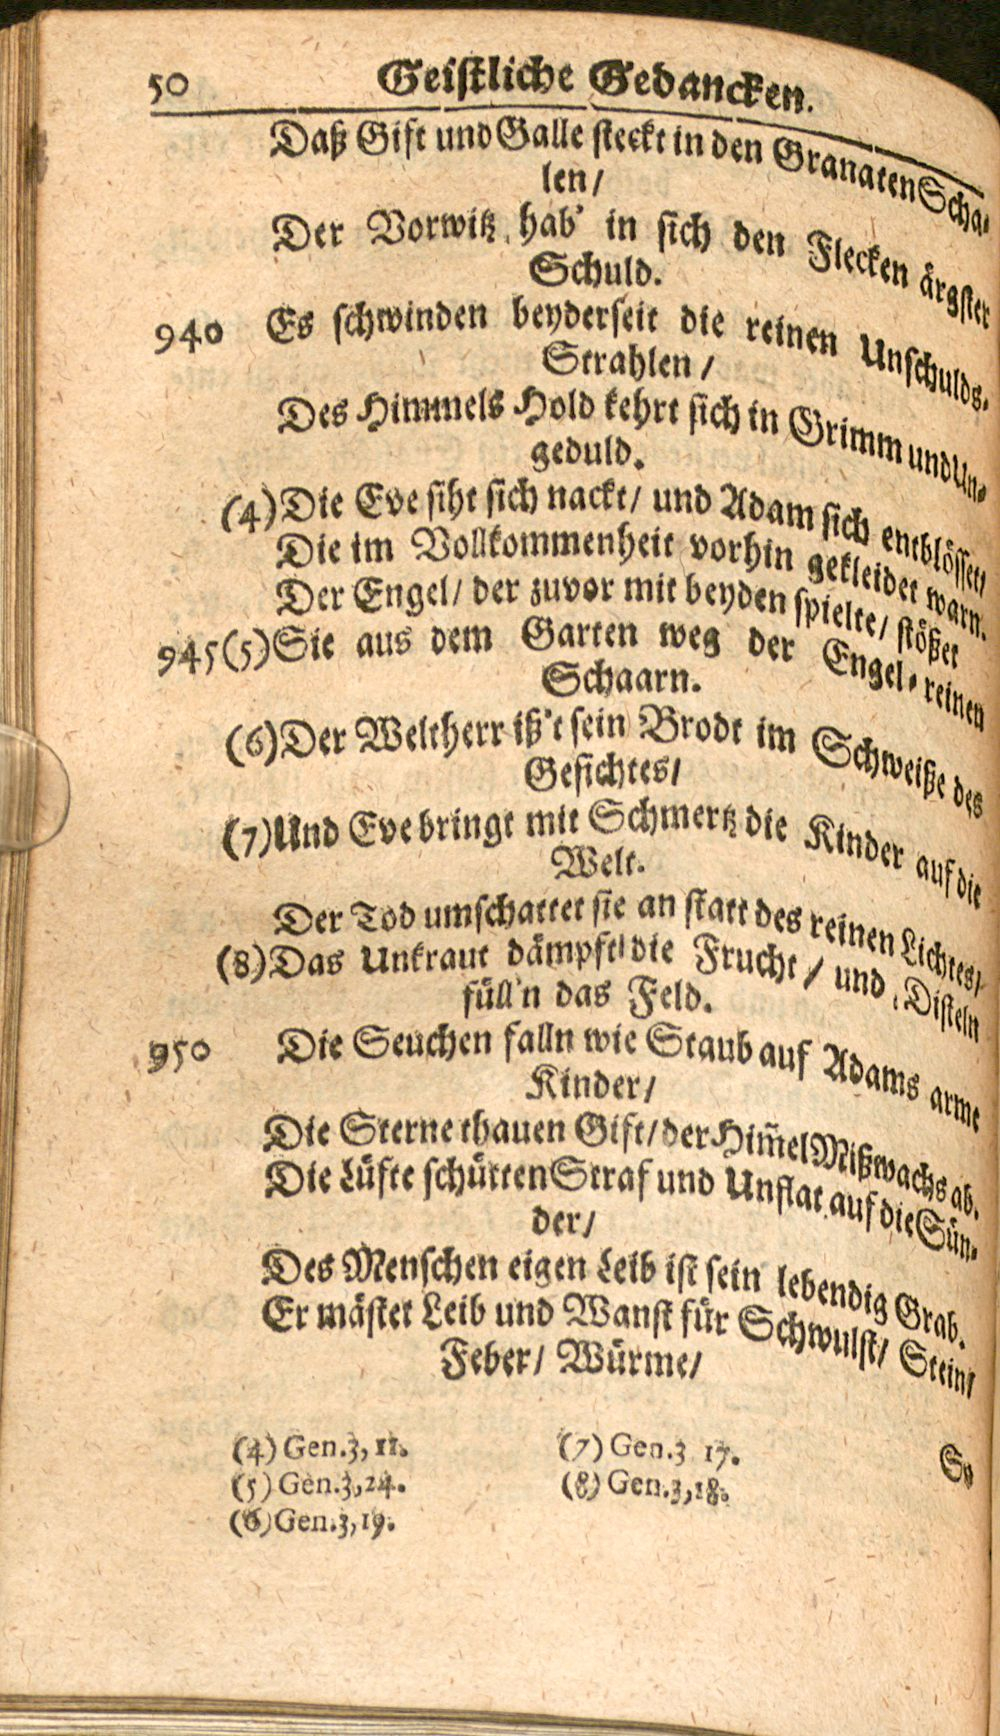 50 Geistliche Gedancken.
Daß Gift und Galle steckt in den Granaten Scha-
len/
Der Vorwitz hab' in sich den Flecken ärgster
Schuld.
940 Es schwinden beyderseit die reinen Unschulds-
Strahlen/
Des Himmels Hold kehrt sich in Grimm und Un-
geduld.
(4) Die Eve siht sich nackt/ und Adam sich entblösset/
Die im Vollkommenheit vorhin gekleidet warn.
Der Engel/ der zuvor mit beyden spielte/ stößet
945 (5) Sie aus dem Garten weg der Engel-reinen
Schaarn.
(6) Der Weltherr iß't sein Brodt im Schweiße des
Gesichtes/
(7) Und Eve bringt mit Schmertz die Kinder auf die
Welt.
Der Tod umschattet sie an statt des reinen Lichtes/
(8) Das Unkraut dämpft die Frucht/ und Disteln
füll'n das Feld.
950 Die Seuchen falln wie Staub auf Adams arme
Kinder/
Die Sterne thauen Gift/ der Him̃el Mißwachs ab.
Die Lüfte schütten Straf und Unflat auf die Sün-
der/
Des Menschen eigen Leib ist sein lebendig Grab.
Er mästet Leib und Wanst für Schwulst/ Stein/
Feber/ Würme/
(4) Gen. 3, 11.
(5) Gen. 3, 24.
(6) Gen. 3, 19.
(7) Gen. 3 17.
(8) Gen. 3, 18.
So